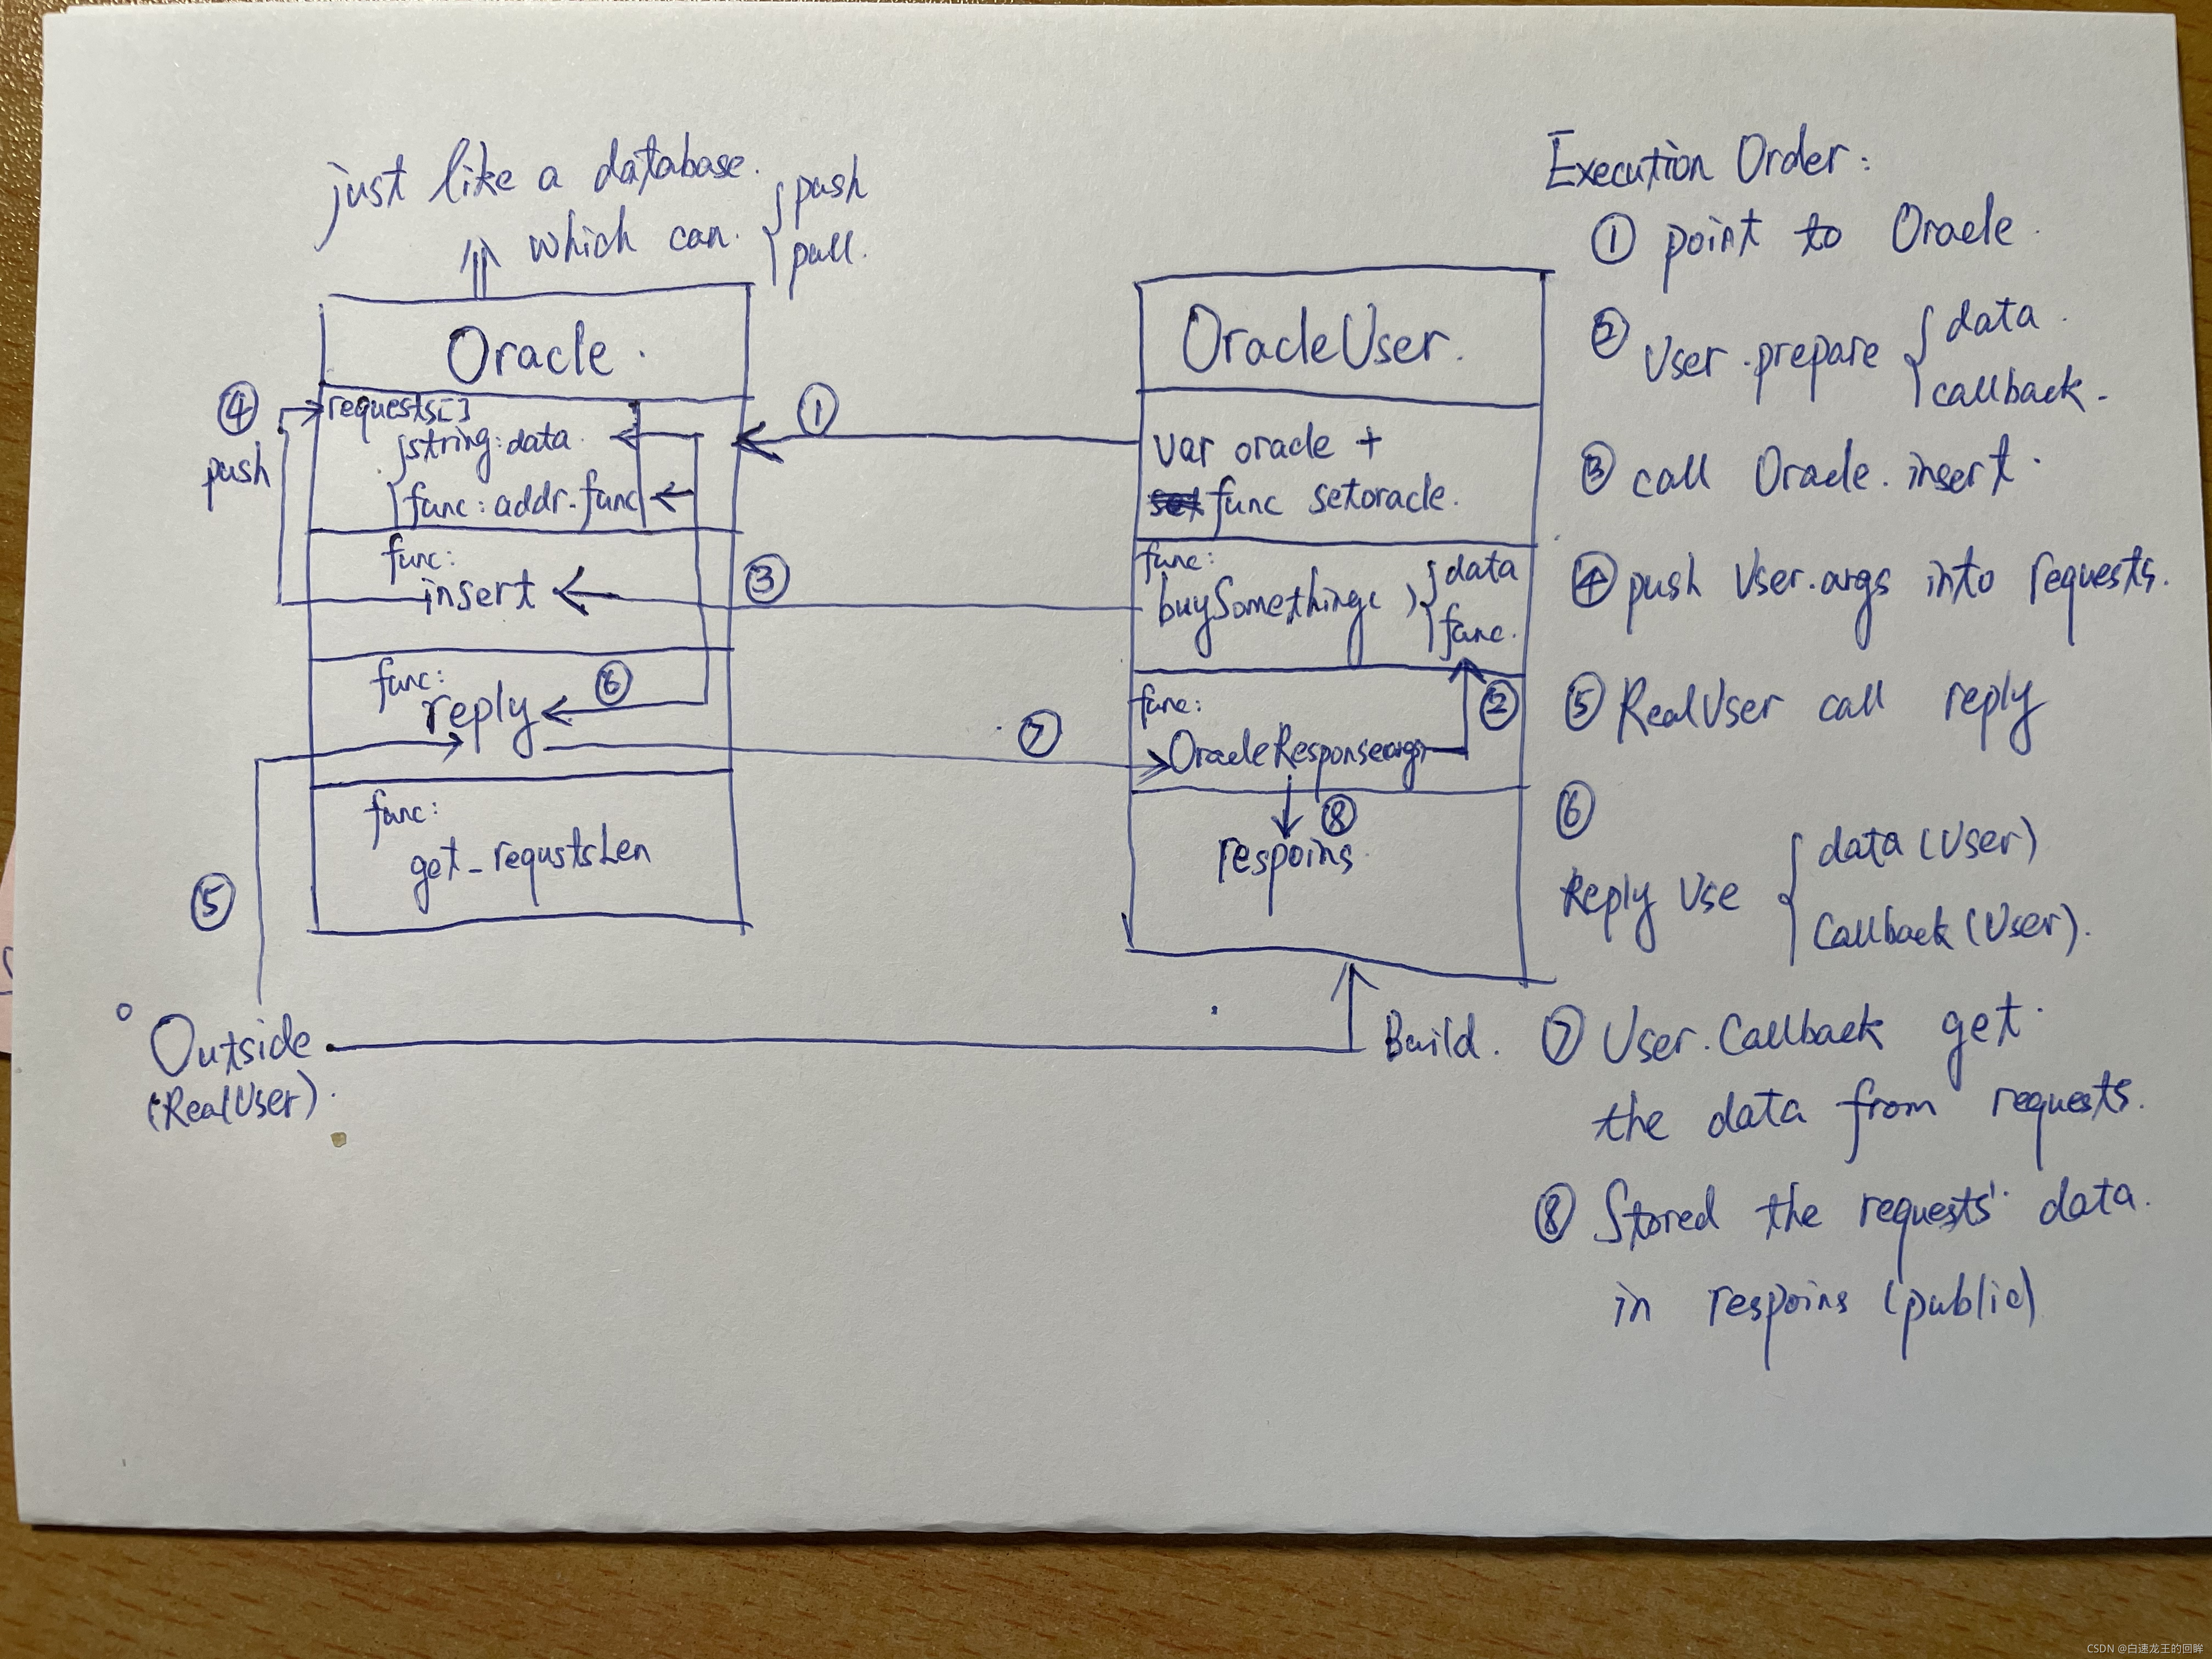 just like a database.
which can { push
pull.
Oracle.
requests[]
{ string: data
func: addr.func
func:
insert
func:
reply
func:
get_requstsLen
④
push
①
③
⑥
⑦
⑤
OracleUser.
var oracle +
func setoracle.
func:
buySomething( ) { data
func.
func:
OracleResponse(args)
②
⑧
respoins
Outside
(RealUser).
Build.
Execution Order:
① point to Oracle.
② User.prepare { data.
callback.
③ call Oracle.insert.
④ push User.args into requests.
⑤ RealUser call reply
⑥
Reply Use { data (User)
Callback (User).
⑦ User.Callback get.
the data from requests.
⑧ Stored the requests' data.
in respoins (public)
CSDN @白速龙王的回眸